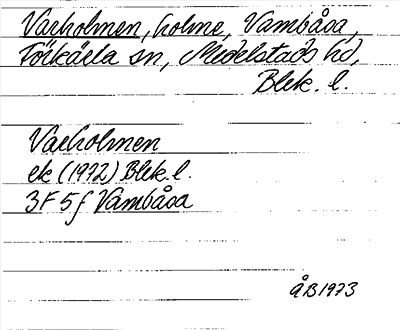 Varholmen, holme, Vambåsa,
Förkärla sn, Medelstads hd,
Blek. l.
Varholmen
ek (1972) Blek. l.
3F 5f Vambåsa
ÅB 1973